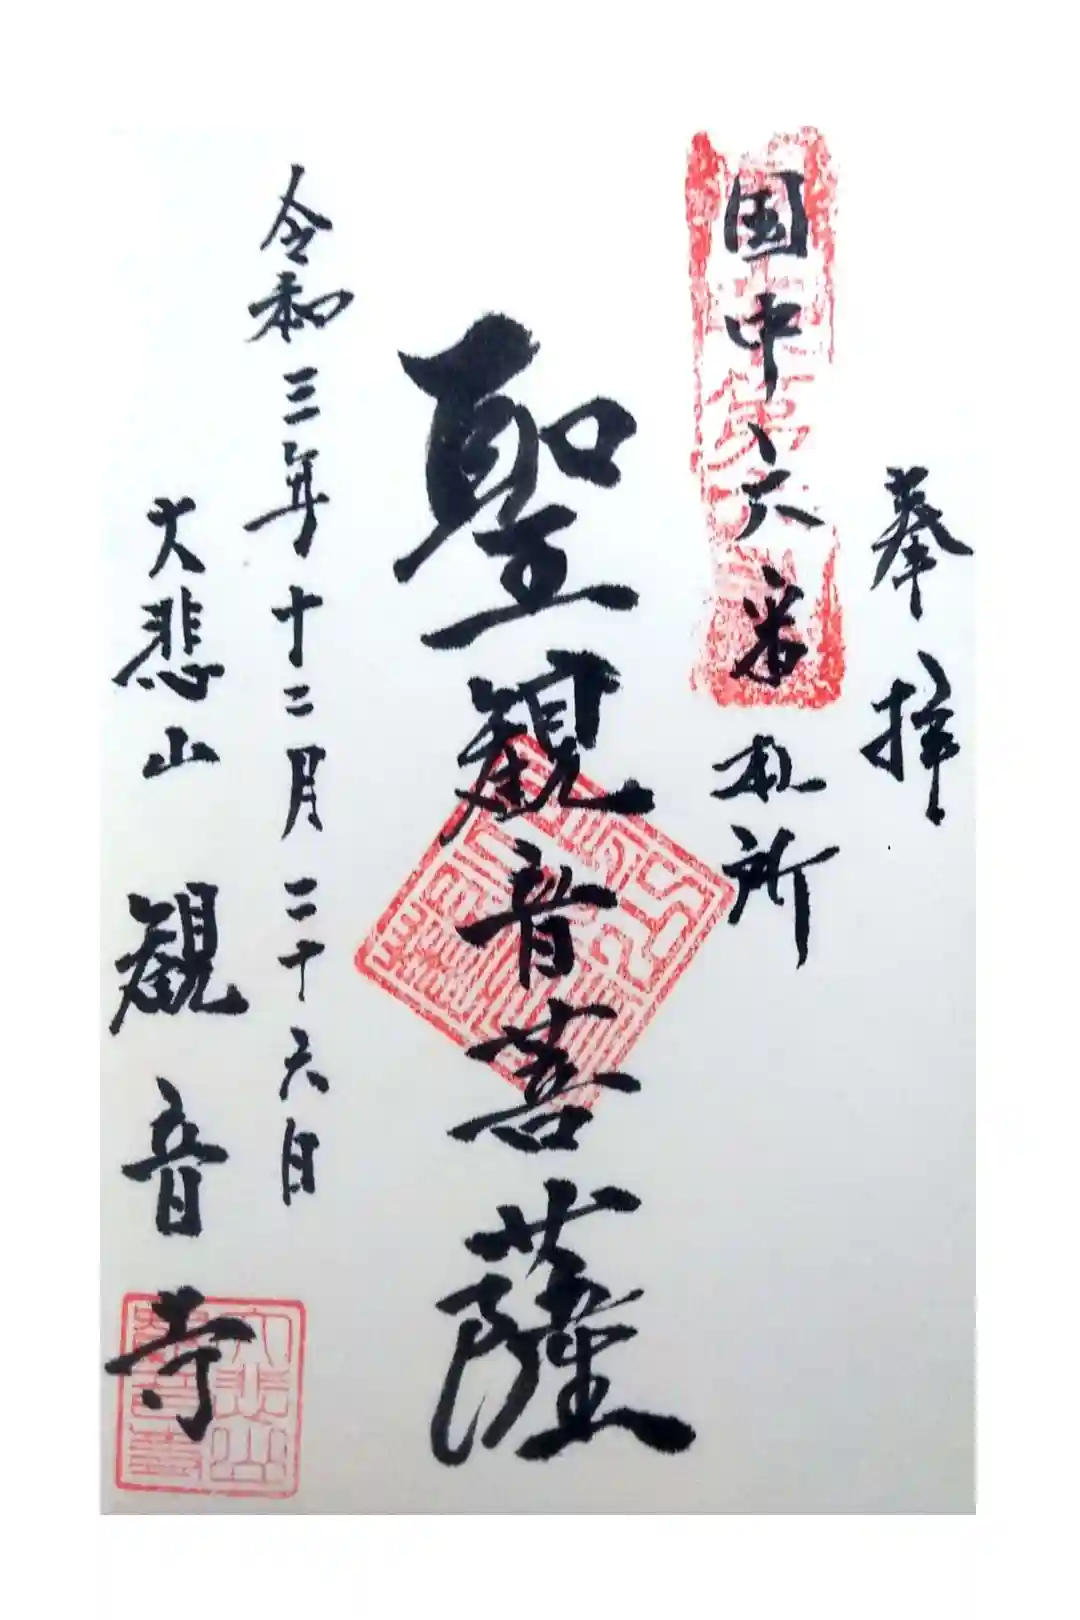 奉拝
国中六番札所
聖観音菩薩
令和三年十二月二十六日
大悲山 観音寺